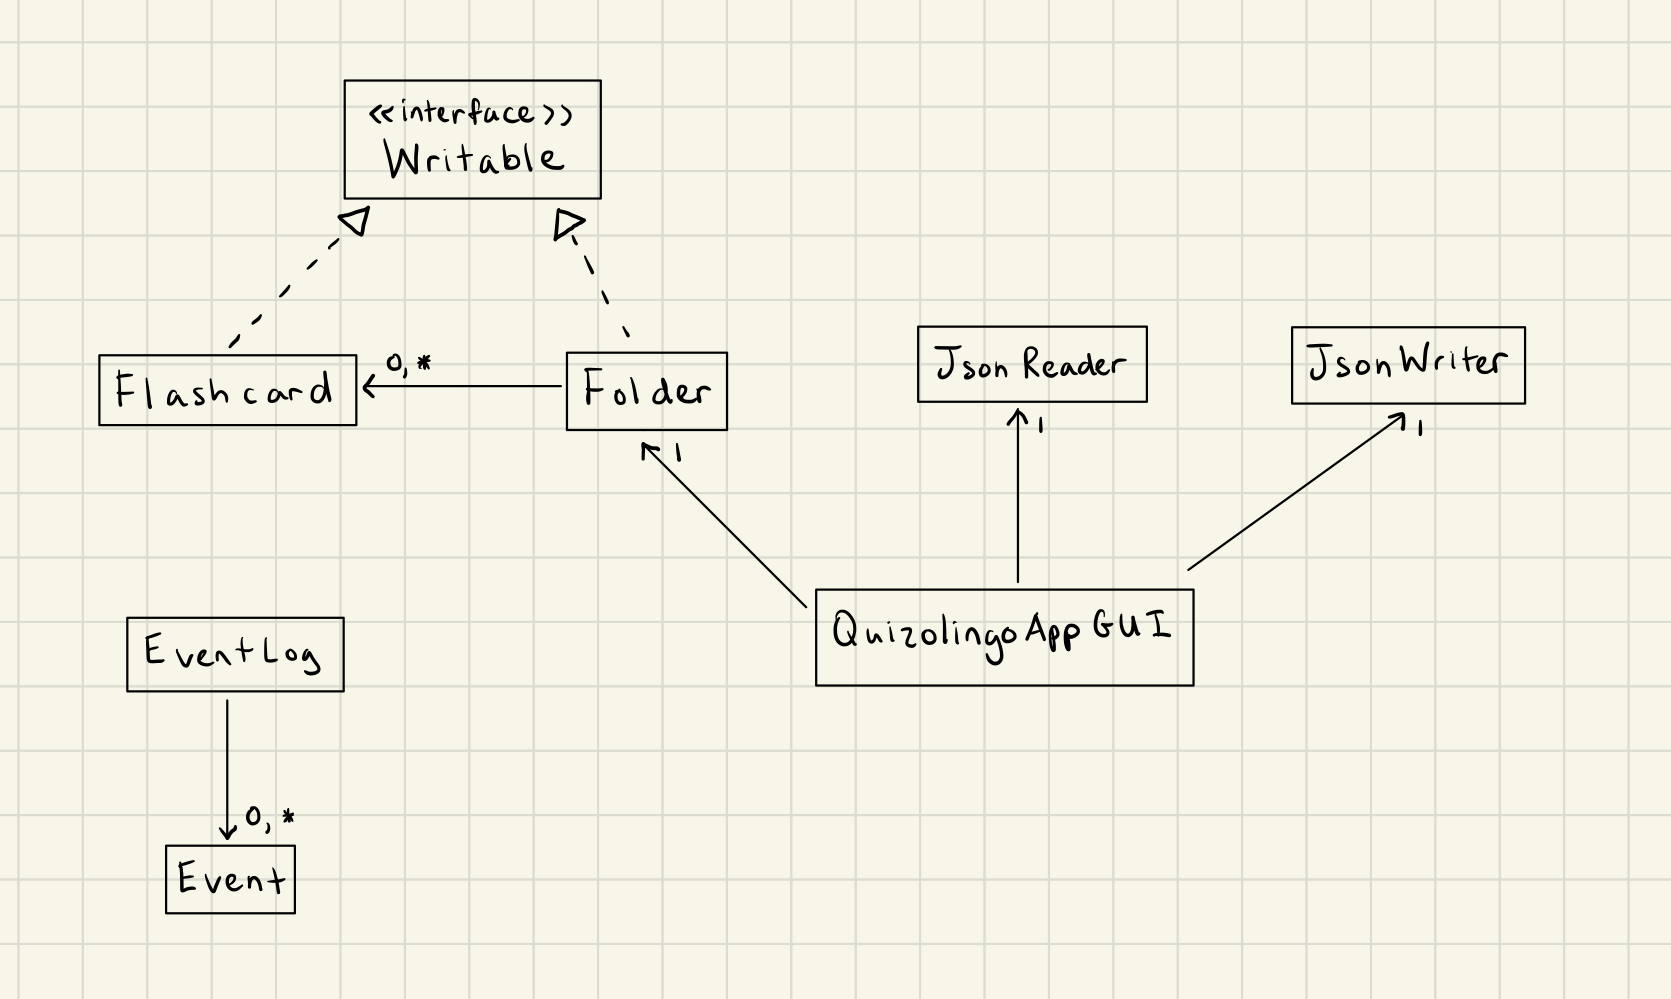 <<interface>>
Writable
Flashcard
0,*
Folder
1
JsonReader
1
JsonWriter
1
QuizolingoAppGUI
EventLog
0,*
Event